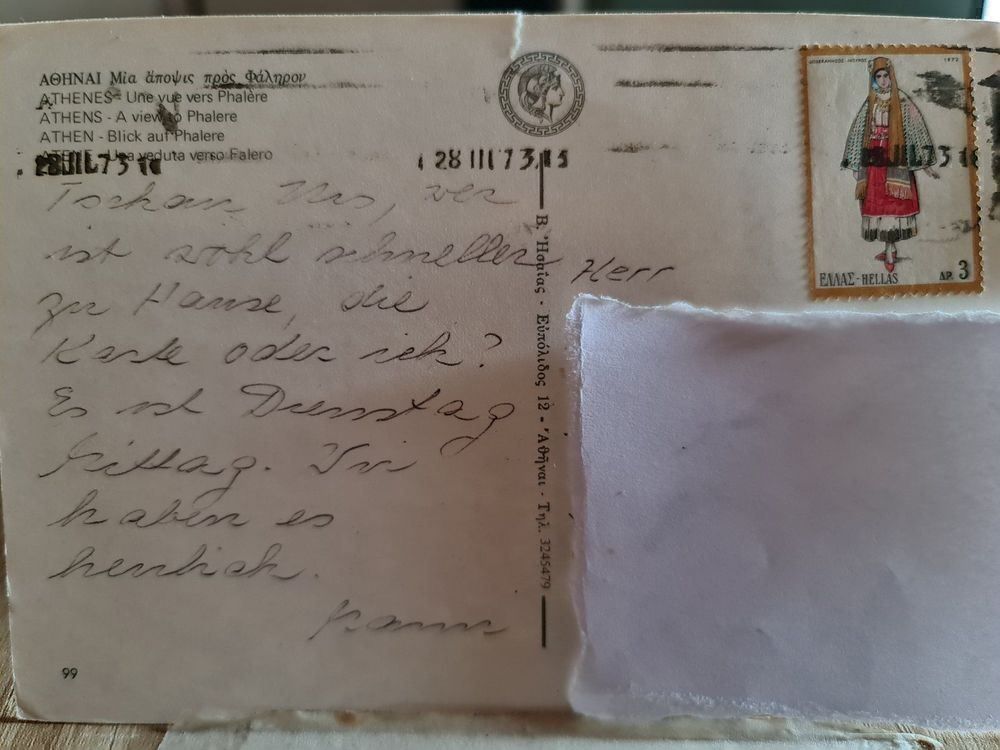 ΑΘΗΝΑΙ Μία ἄποψις πρὸς Φάληρον
ATHENES - Une vue vers Phalère
ATHENS - A view to Phalere
ATHEN - Blick auf Phalere
ATENE - Una veduta verso Falero
28 III 73
Tschau Urs, wer
ist wohl schneller
zu Hause, die
Karte oder ich?
Es ist Dienstag
Mittag. Wir
haben es
herrlich.
99
Β. Ἡσαΐας · Εὐπόλιδος 12 · Ἀθῆναι · Τηλ. 3245479
Herr
1972
ΕΛΛΑΣ-HELLAS
ΔΡ. 3